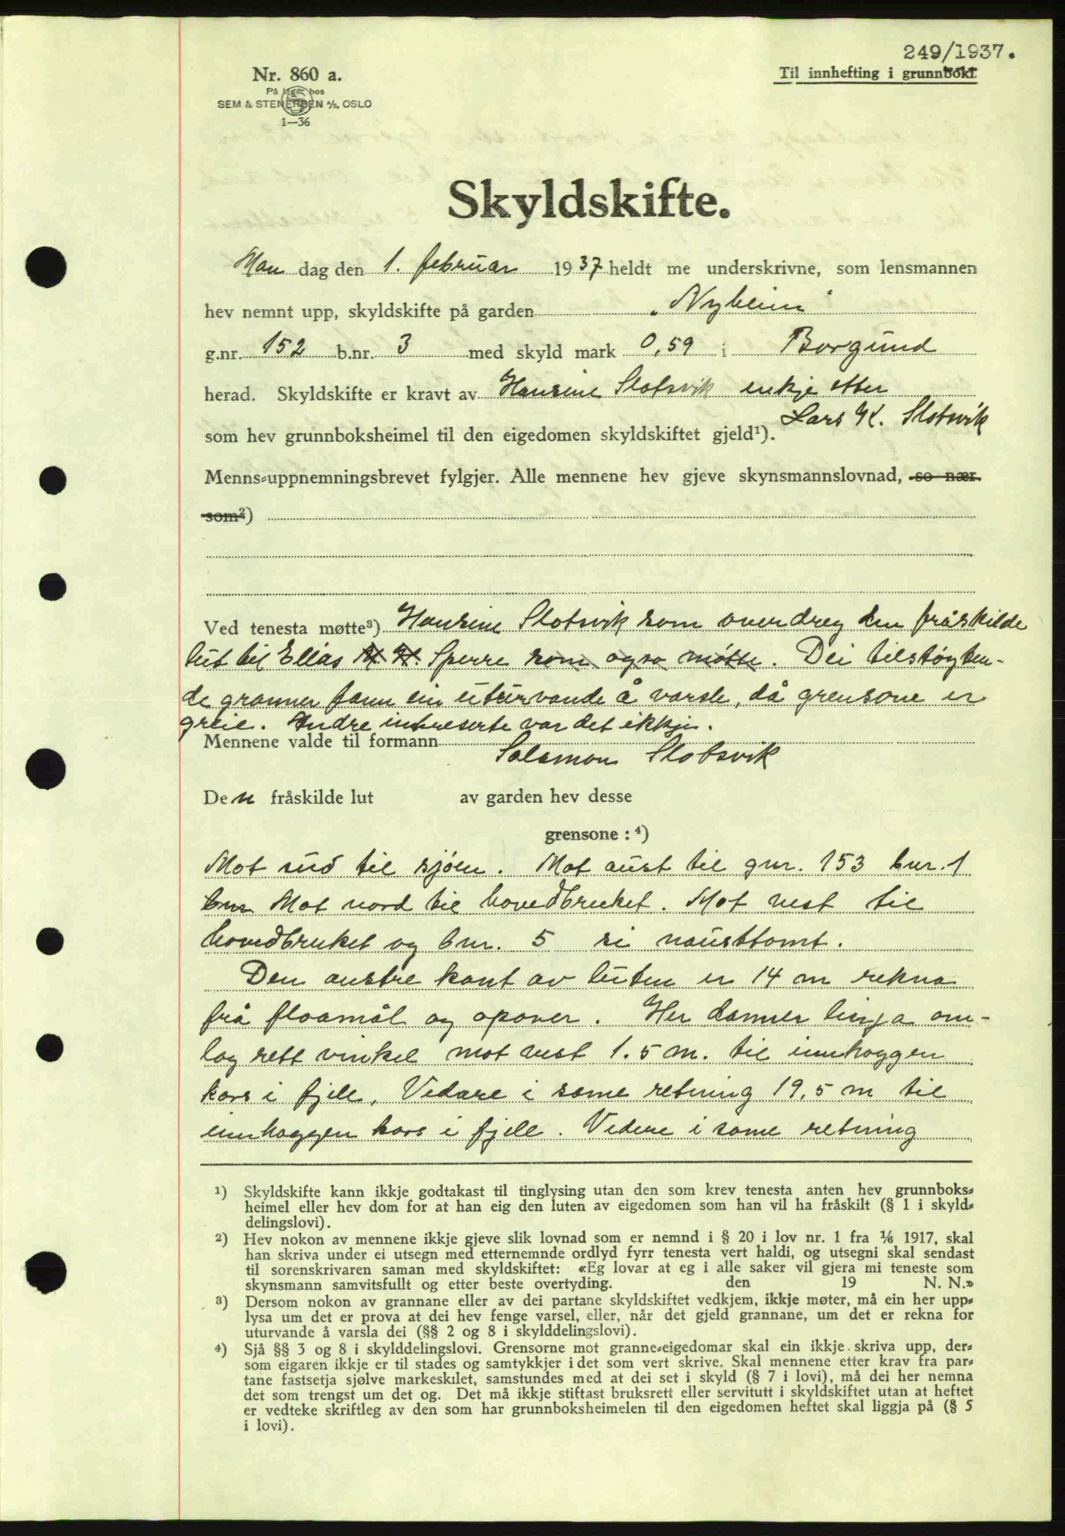 249/1937.
Nr. 860 a.
Til innhefting i grunnboki.
På lager hos
SEM & STENERSEN A/S, OSLO
1—36
Skyldskifte.
Man dag den 1. februar 1937 heldt me underskrivne, som lensmannen
hev nemnt upp, skyldskifte på garden „Nyheim"
g.nr. 152 b.nr. 3 med skyld mark 0,59 i Borgund
herad. Skyldskifte er kravt av Hansine Slotsvik enkje etter
Lars K. Slotsvik
som hev grunnboksheimel til den eigedomen skyldskiftet gjeld¹).
Menns-uppnemningsbrevet fylgjer. Alle mennene hev gjeve skynsmannslovnad, so nær
som²)
Ved tenesta møtte³) Hansine Slotsvik som overdreg den fråskilde
lut til Ellas Sperre som også møtte. Dei tilstøyten-
de granner fann ein uturvande å varsle, då grensone er
greie. Andre intreserte var det ikkje.
Mennene valde til formann Salamon Slotsvik
Den fråskilde lut av garden hev desse
grensone : ⁴)
Mot sud til sjøen. Mot aust til gnr. 153 bnr. 1
bnr Mot nord til hovedbruket. Mot vest til
hovedbruket og bnr. 5 si nausttomt.
Den austre kant av luten er 14 m rekna
frå floamål og opover. Her danner linja om-
lag rett vinkel mot vest 1.5 m. til innhoggen
kors i fjell, Vidare i same retning 19,5 m til
innhoggen kors i fjell. Videre i same retning
¹) Skyldskifte kann ikkje godtakast til tinglysing utan den som krev tenesta anten hev grunnboks-
heimel eller hev dom for at han eig den luten av eigedomen som han vil ha fråskilt (§ 1 i skyld-
delingslovi).
²) Hev nokon av mennene ikkje gjeve slik lovnad som er nemnd i § 20 i lov nr. 1 fra 1/6 1917, skal
han skriva under ei utsegn med etternemnde ordlyd fyrr tenesta vert haldi, og utsegni skal sendast
til sorenskrivaren saman med skyldskiftet: «Eg lovar at eg i alle saker vil gjera mi teneste som
skynsmann samvitsfullt og etter beste overtyding. den 19 N. N.»
³) Dersom nokon av grannane eller av dei partane skyldskiftet vedkjem, ikkje møter, må ein her upp-
lysa um det er prova at dei hev fenge varsel, eller, når det gjeld grannane, um det er rekna for
uturvande å varsla dei (§§ 2 og 8 i skylddelingslovi).
⁴) Sjå §§ 3 og 8 i skylddelingslovi. Grensorne mot granne-eigedomar skal ein ikkje skriva upp, der-
som eigaren ikkje er til stades og samtykkjer i det som vert skrive. Skal mennene etter krav fra par-
tane fastsetja sjølve markeskilet, samstundes med at dei set i skyld (§ 7 i lovi), må dei her nemna
det som trengst um det og. Det må ikkje stiftast bruksrett eller servitutt i skyldskiftet utan at heftet
er vedteke skriftleg av den som har grunnboksheimelen til den eigedomen heftet skal liggja på (§ 5
i lovi).